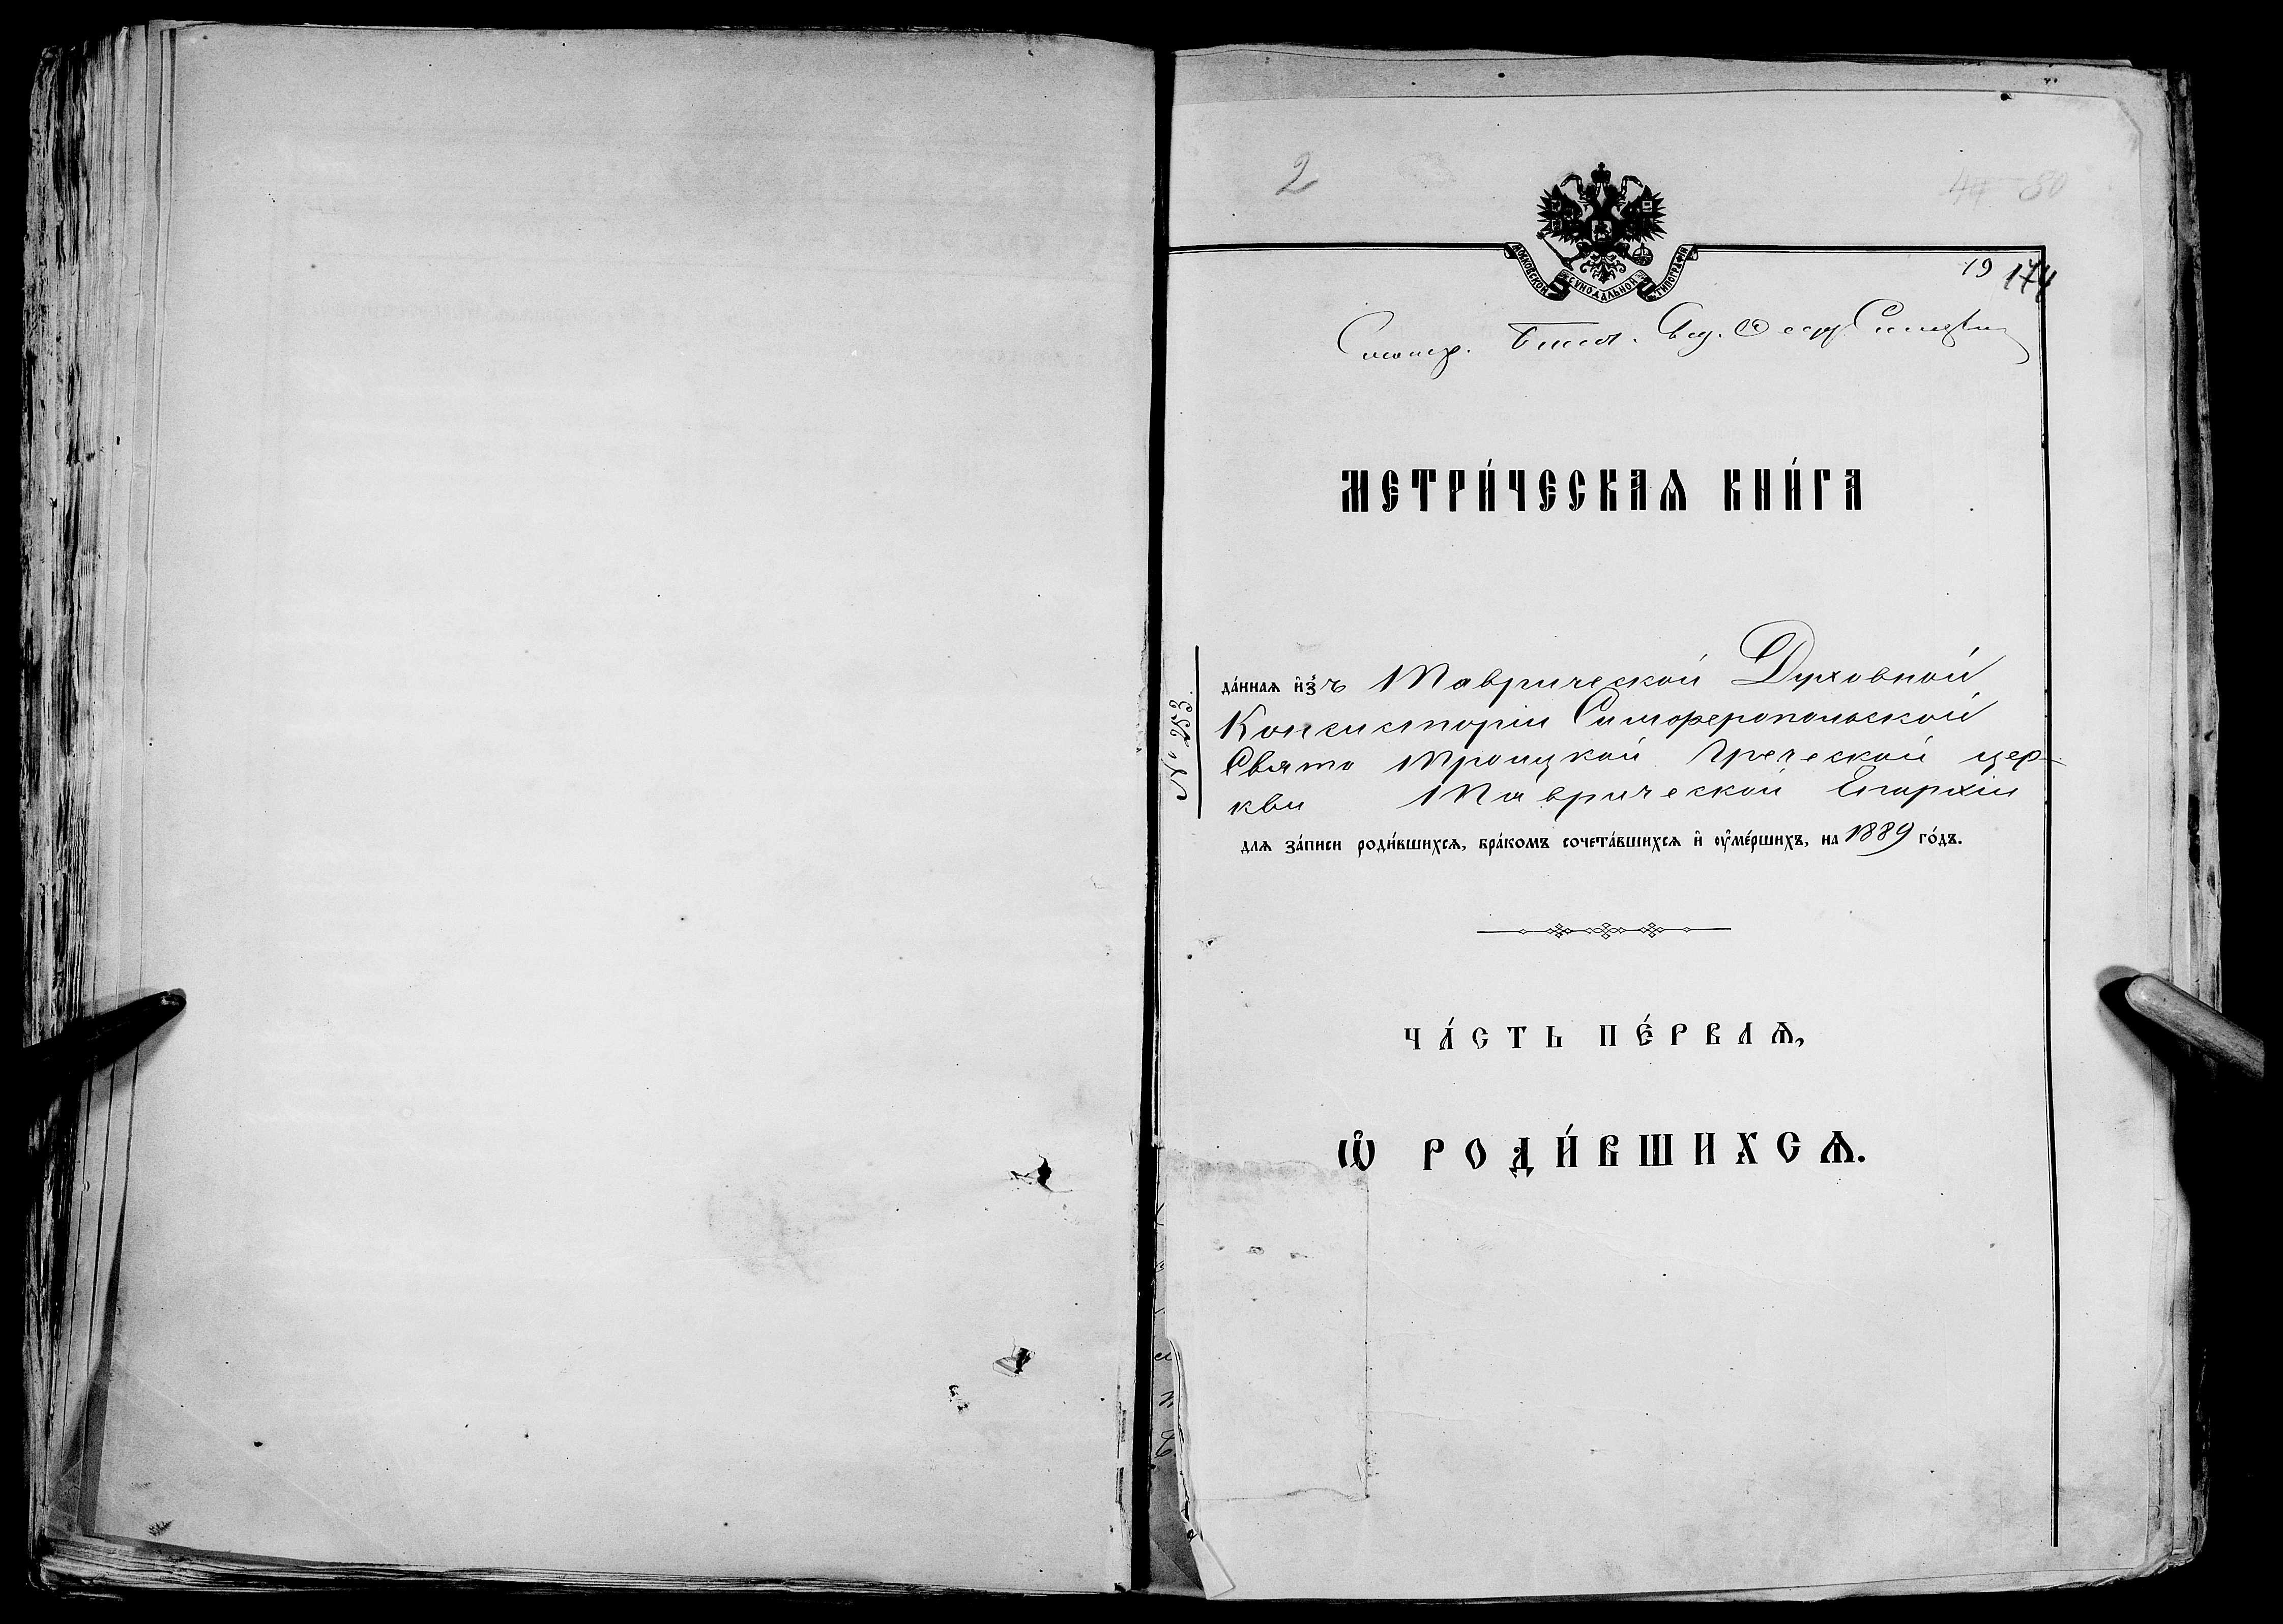 2
44 80
МОСКОВСКОЙ СѴНОДАЛЬНОЙ ТИПОГРАФІИ
19 174
МЕТРИ́ЧЕСКАѦ КНИ́ГА
№ 253.
да́ннаѧ и҆́зъ Таврической Духовной
Консисторіи Симферопольской
Свято Троицкой Греческой цер-
кви Таврической Епархіи
длѧ за́писи роди́вшихсѧ, бра́комъ сочета́вшихсѧ и҆ ᲂу҆ме́ршихъ, на 1889 го́дъ.
ЧА́СТЬ ПЕ́РВАѦ,
Ѡ҆ РОДИ́ВШИХСѦ.